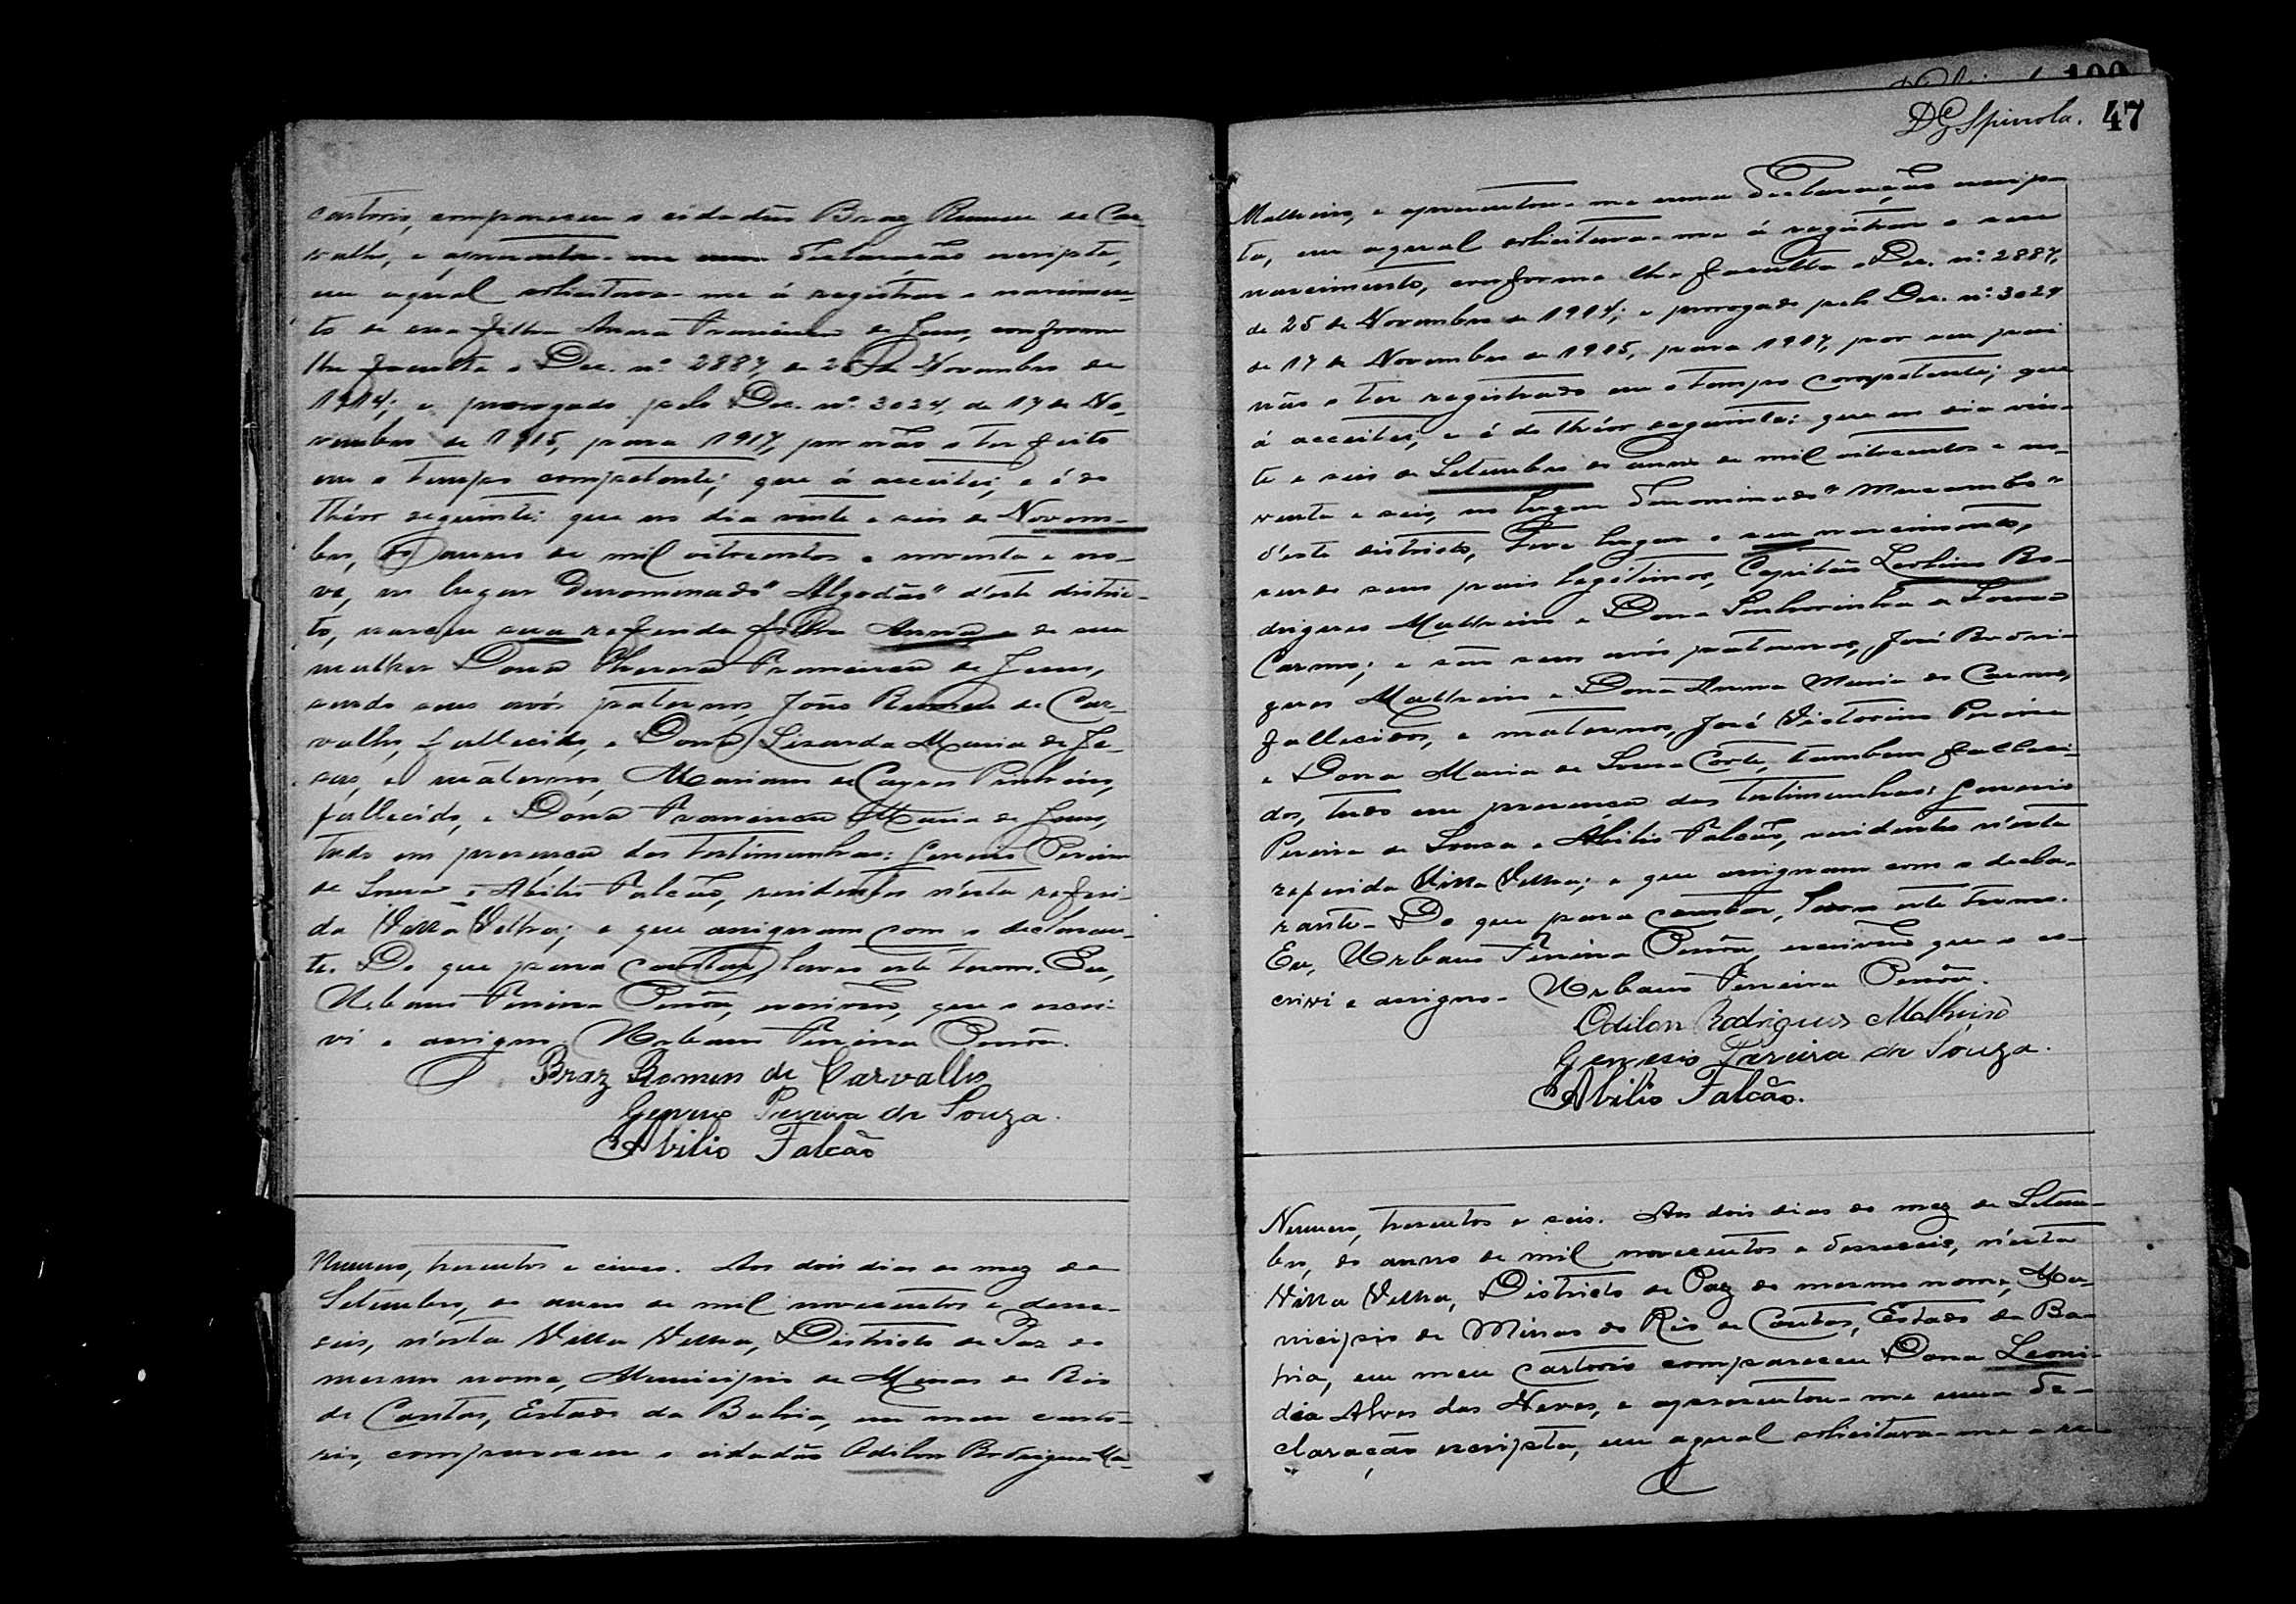 cartorio, compareceu o cidadão Braz Romeu de Car-
valho, e apresentou-me uma declaração escripta,
em a qual solicitava-me á registrar o nascimen-
to de sua filha Anna Francisca de Jesus, conforme
lhe faculta o Dec. nº 2887, de 25 de Novembro de
1914; e prorogado pelo Dec. nº 3024, de 17 de No-
vembro de 1915, para 1917, por não o ter feito
em o tempo competente; que á acceitei, e é do
theor seguinte: que no dia vinte e seis de Novem-
bro, do anno de mil oitocentos e noventa e no-
ve, no lugar denominado "Algodão" d'este distric-
to, nasceu sua referida filha Anna e de sua
mulher Dona Theresa Francisca de Jesus,
sendo seus avós paternos, João Romeu de Car-
valho, fallecido, e Dona Lisarda Maria de Je-
sus, e maternos, Mariano de Pinheiro,
fallecido, e Dona Francisca Maria de Jesus,
tudo em presença das testimunhas: Genesio Pereira
de Souza e Abilio Falcão, residentes n'esta referi-
da Villa Velha; e que assignam com o declaran-
te. Do que para constar, lavro este termo. Eu,
Urbano Pereira, escrivão, que o escre-
vi e assigno. Urbano Pereira
Braz Romeu de Carvalho
Genesio Pereira de Souza.
Abilio Falcão
Numero, trezentos e cinco. Aos dois dias do mez de
Setembro, do anno de mil novecentos e dese-
seis, n'esta Villa Velha, Districto de Paz do
mesmo nome, Municipio de Minas do Rio
de Contas, Estado da Bahia, em meu carto-
rio, compareceu o cidadão Odilon Rodrigues Ma-
DG Spinola. 47
Malheiro, e apresentou-me uma declaração escrip-
ta, em a qual solicitava-me á registrar o seu
nascimento, conforme lhe faculta o Dec. nº 2887,
de 25 de Novembro de 1914; e prorogado pelo Dec. nº 3024
de 17 de Novembro de 1915, para 1917, por seu pai
não o ter registrado em o tempo competente; que
á acceitei, e é do theor seguinte: que no dia vin-
te e seis de Setembro do anno de mil oitocentos e no-
venta e seis, no lugar denominado "Mucambo"
d'este districto, teve lugar o seu nascimento,
sendo seus pais legitimos, Capitão Leolino Ro-
drigues Malheiro e Dona Senhorinha de Souza
Carmo; e são seus avós paternos, José Rodri-
gues Malheiro e Dona Anna Maria do Carmo,
fallecidos, e maternos, José Victorino Pereira
e Dona Maria de Souza Corte, tambem falleci-
dos, tudo em presença das testimunhas: Genesio
Pereira de Souza e Abilio Falcão, residentes n'esta
referida Villa Velha; e que assignam com o decla-
rante. Do que para constar, lavro este termo.
Eu, Urbano Pereira, escrivão que o es-
crevi e assigno. Urbano Pereira
Odilon Rodrigues Malheiro
Genesio Pereira de Souza.
Abilio Falcão.
Numero, trezentos e seis. Aos dois dias do mez de Setem-
bro, do anno de mil novecentos e desaseis, n'esta
Villa Velha, Districto de Paz do mesmo nome, Mu-
nicipio de Minas do Rio de Contas, Estado da Ba-
hia, em meu cartorio compareceu Dona Leoni-
dia Alves das Neves, e apresentou-me uma de-
claração escripta, em a qual solicitava-me a re-